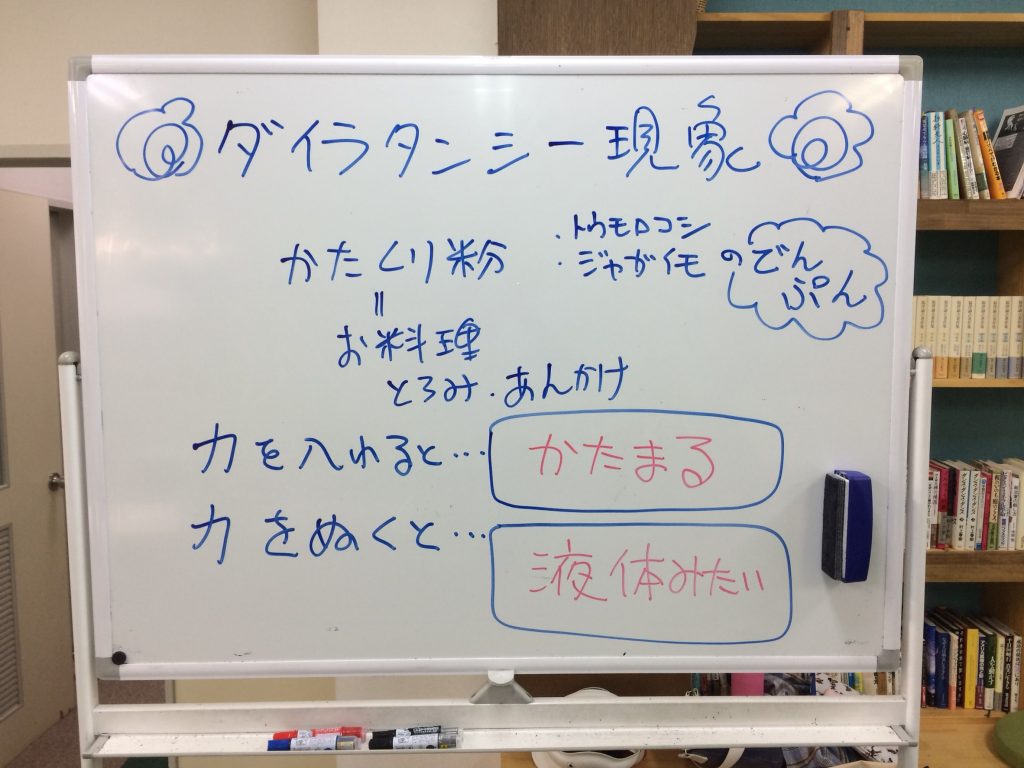 ダイラタンシー現象
かたくり粉
・トウモロコシ
・ジャガイモ
のでん
ぷん
॥
お料理
とろみ・あんかけ
力を入れると…
かたまる
力をぬくと…
液体みたい